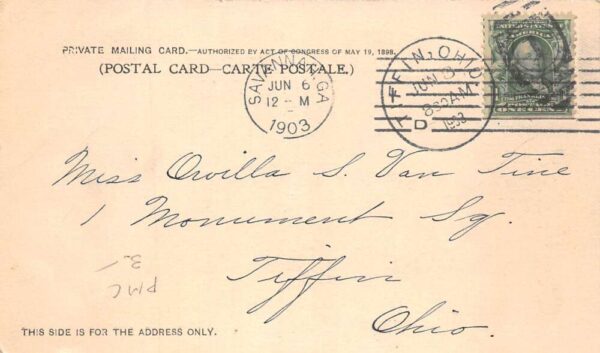 PRIVATE MAILING CARD.—AUTHORIZED BY ACT OF CONGRESS OF MAY 19, 1898.
(POSTAL CARD—CARTE POSTALE.)
SAVANNAH, GA
JUN 6
12 - M
1903
TIFFIN, OHIO
JUN
830 AM
1903
D
Miss Orvilla S. Van Tine
1 Monument Sq.
Tiffin
Ohio.
PMC
3.-
THIS SIDE IS FOR THE ADDRESS ONLY.